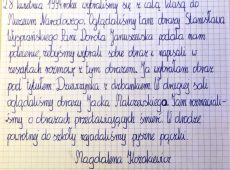 28 kwietnia 1994 roku wybraliśmy się z całą klasą do
Muzeum Narodowego. Oglądaliśmy tam obrazy Stanisława
Wyspiańskiego. Pani Dorota Januszewska podała nam
polecenie, żebyśmy wybrali sobie obraz i napisali w
zeszytach rozmowę z tym obrazem. Ja wybrałam obraz
pod tytułem Dziewczynka z dzbankiem. W drugiej sali
oglądaliśmy obrazy Jacka Malczewskiego. Tam rozmawiali-
śmy o obrazach przedstawiających śmierć. W drodze
powrotnej do szkoły zajadaliśmy pyszne pączki.
Magdalena